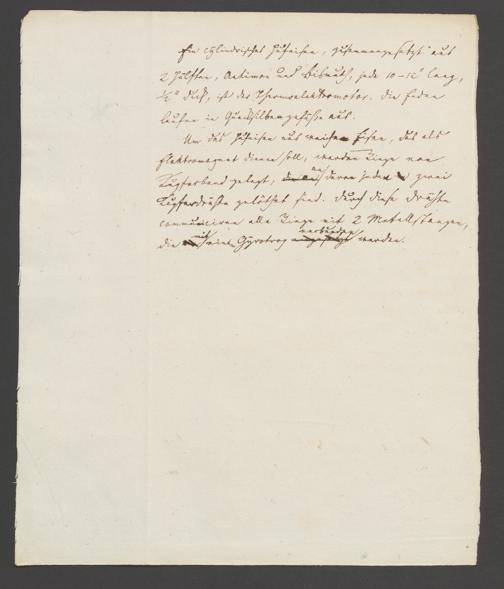 Ein cylindrisches Hufeisen, zusammengesetzt aus
2 Hälften, Antimon und Wismuth, jede 10–12" lang,
½" dick, ist der Thermoelektromotor. Die Enden
laufen in Quecksilbergefäße aus.
Um das Hufeisen aus weichem Eisen, das als
Elektromagnet dienen soll, werden Ringe von
Kupferband gelegt, an deren jeden zwei
Kupferdrähte gelöthet sind. Durch diese Drähte
communiciren alle Ringe mit 2 Metallstangen,
die mit einem Gyrotrop verbunden werden.